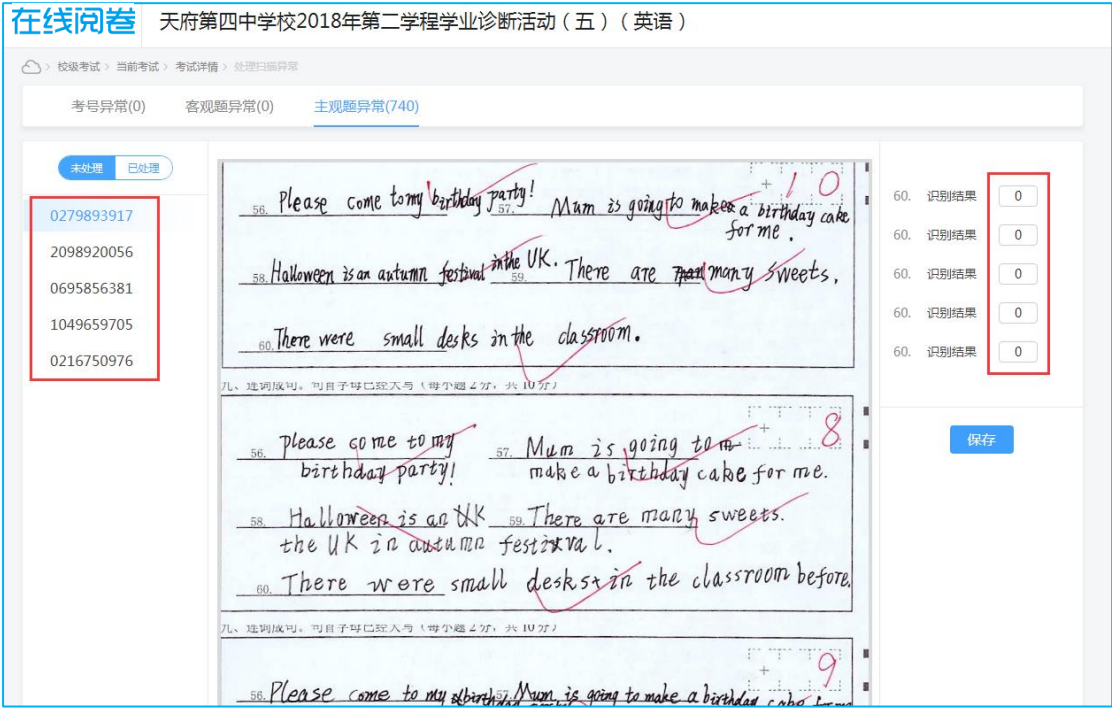 在线阅卷 天府第四中学校2018年第二学程学业诊断活动（五）（英语）
校级考试 > 当前考试 > 考试详情 > 处理扫描异常
考号异常(0) 客观题异常(0) 主观题异常(740)
未处理 已处理
0279893917
2098920056
0695856381
1049659705
0216750976
10
56. Please come to my birthday party! 57. Mum is going to make a birthday cake
for me.
58. Halloween is an autumn festival in the UK. 59. There are many sweets.
60. There were small desks in the classroom.
九、连词成句。句首字母已经大写（每小题2分，共10分）
8
56. please come to my 57. Mum is going to m
birthday party! make a birthday cake for me.
58. Halloween is an UK 59. There are many sweets.
the UK in autumn festival.
60. There were small desks in the classroom before.
九、连词成句。句首字母已经大写（每小题2分，共10分）
9
56. Please come to my 57. Mum is going to make a birthday cake for me
60. 识别结果 0
60. 识别结果 0
60. 识别结果 0
60. 识别结果 0
60. 识别结果 0
保存